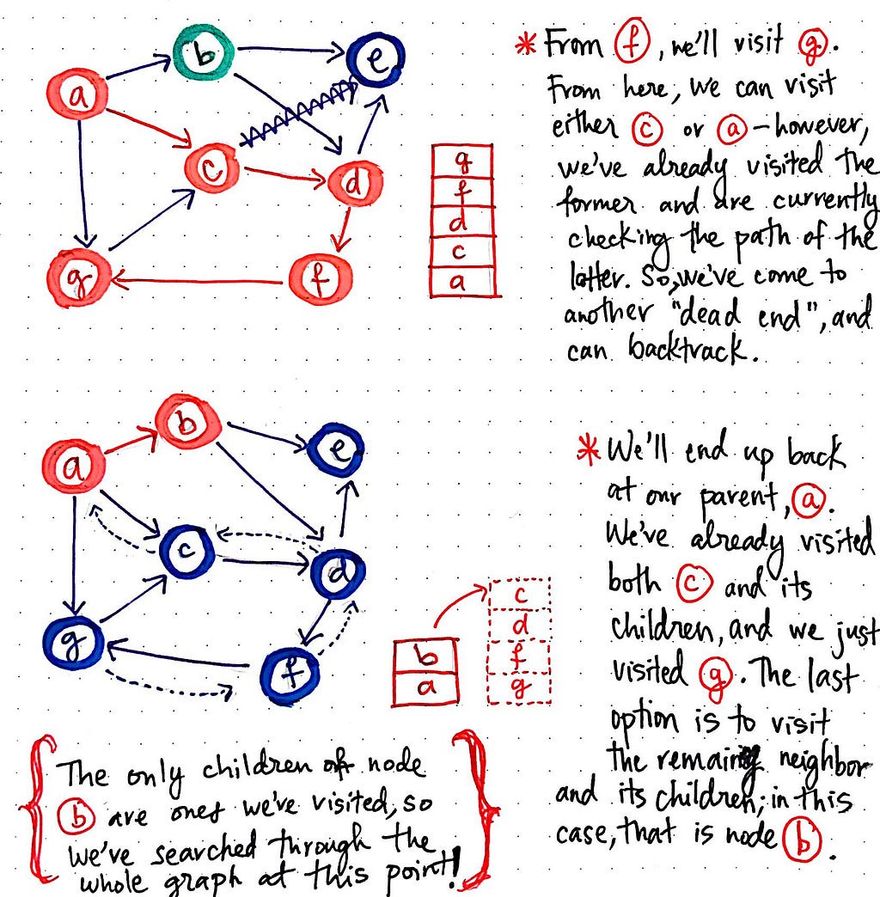 b
e
a
c
d
g
f
g
f
d
c
a
* From f, we'll visit g.
From here, we can visit
either c or a - however,
we've already visited the
former and are currently
checking the path of the
latter. So, we've come to
another "dead end", and
can backtrack.
b
a
e
c
d
g
f
b
a
c
d
f
g
* We'll end up back
at our parent, a.
We've already visited
both c and its
children, and we just
visited g. The last
option is to visit
the remaing neighbor
and its children; in this
case, that is node b.
{ The only children of node
b are ones we've visited, so
we've searched through the
whole graph at this point! }